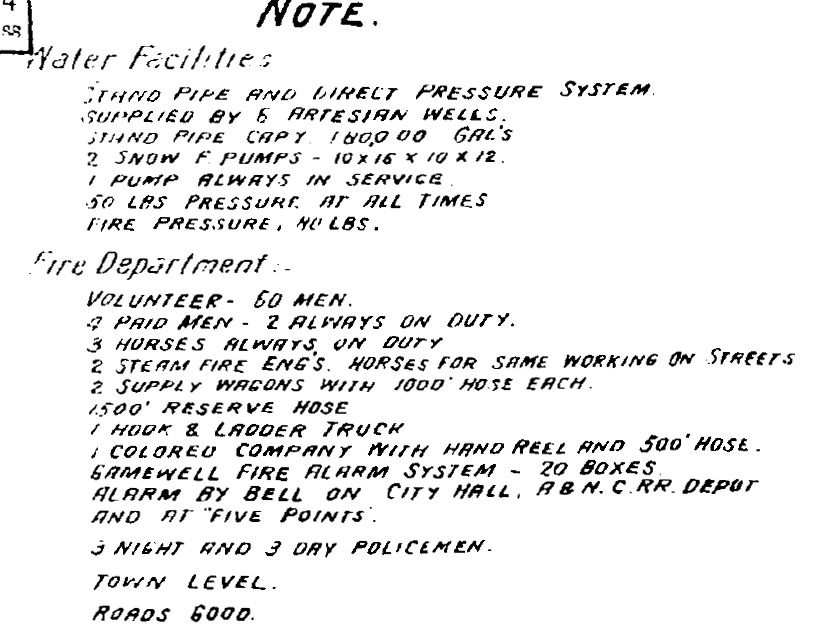 4
NOTE.
Water Facilities
STAND PIPE AND DIRECT PRESSURE SYSTEM.
SUPPLIED BY 6 ARTESIAN WELLS.
STAND PIPE CAPY. 180,000 GAL'S
2 SNOW F. PUMPS - 10 X 16 X 10 X 12.
1 PUMP ALWAYS IN SERVICE.
50 LBS PRESSURE AT ALL TIMES
FIRE PRESSURE, 110 LBS.
Fire Department:-
VOLUNTEER - 60 MEN.
4 PAID MEN - 2 ALWAYS ON DUTY.
3 HORSES ALWAYS ON DUTY
2 STEAM FIRE ENG'S. HORSES FOR SAME WORKING ON STREETS
2 SUPPLY WAGONS WITH 1000' HOSE EACH.
1500' RESERVE HOSE
1 HOOK & LADDER TRUCK
1 COLORED COMPANY WITH HAND REEL AND 500' HOSE.
GAMEWELL FIRE ALARM SYSTEM - 20 BOXES
ALARM BY BELL ON CITY HALL, A & N. C. RR. DEPOT
AND AT "FIVE POINTS".
3 NIGHT AND 3 DAY POLICEMEN.
TOWN LEVEL.
ROADS GOOD.